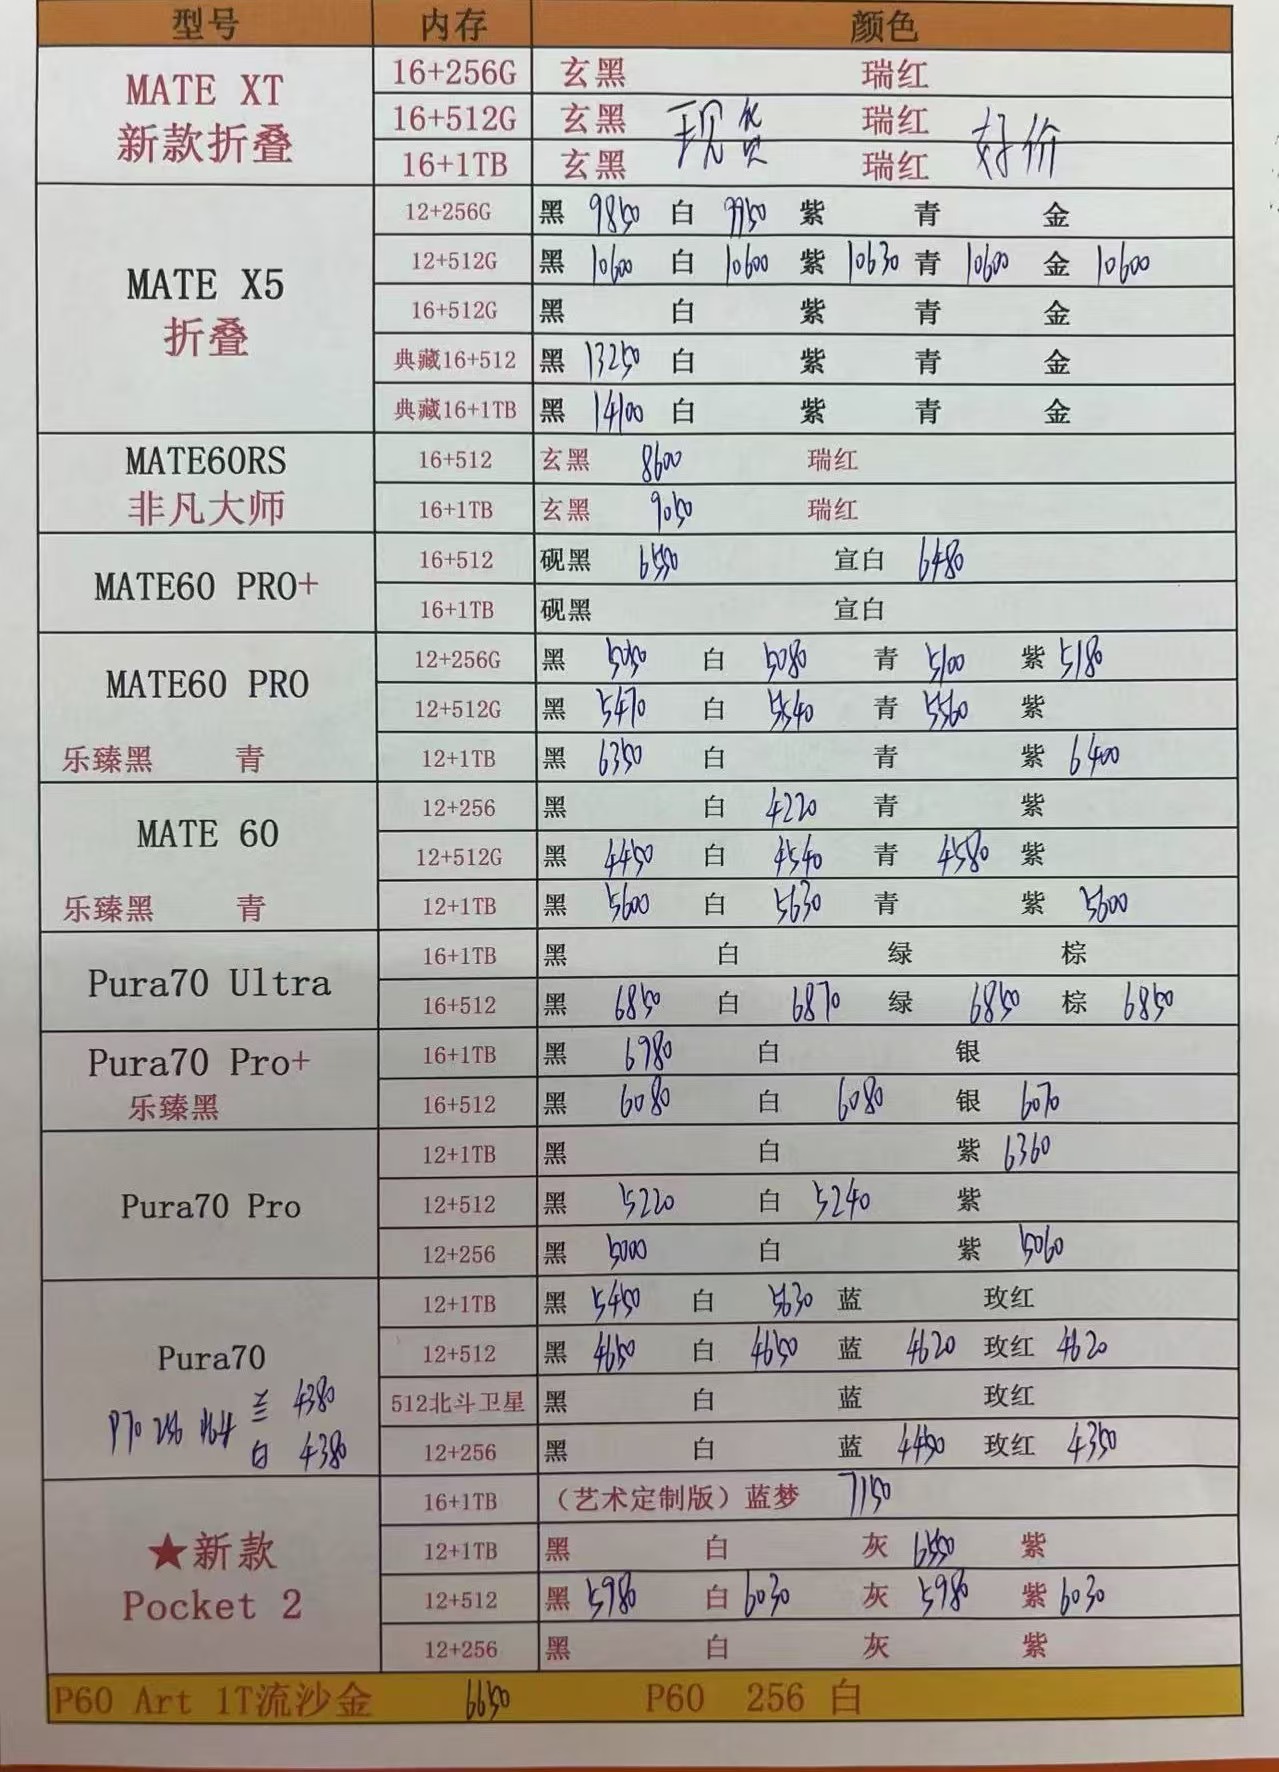 型号 内存 颜色
MATE XT 新款折叠
16+256G 玄黑 瑞红
16+512G 玄黑 瑞红
16+1TB 玄黑 瑞红
现货 好价
MATE X5 折叠
12+256G 黑 9850 白 9950 紫 青 金
12+512G 黑 10600 白 10600 紫 10630 青 10600 金 10600
16+512G 黑 白 紫 青 金
典藏16+512 黑 13250 白 紫 青 金
典藏16+1TB 黑 14100 白 紫 青 金
MATE60RS 非凡大师
16+512 玄黑 8600 瑞红
16+1TB 玄黑 9050 瑞红
MATE60 PRO+
16+512 砚黑 6550 宣白 6480
16+1TB 砚黑 宣白
MATE60 PRO
乐臻黑 青
12+256G 黑 5050 白 5080 青 5100 紫 5180
12+512G 黑 5470 白 5540 青 5560 紫
12+1TB 黑 6350 白 青 紫 6400
MATE 60
乐臻黑 青
12+256 黑 白 4220 青 紫
12+512G 黑 4450 白 4540 青 4580 紫
12+1TB 黑 5600 白 5630 青 紫 5600
Pura70 Ultra
16+1TB 黑 白 绿 棕
16+512 黑 6850 白 6870 绿 6850 棕 6850
Pura70 Pro+
乐臻黑
16+1TB 黑 6980 白 银
16+512 黑 6080 白 6080 银 6070
Pura70 Pro
12+1TB 黑 白 紫 6360
12+512 黑 5220 白 5240 紫
12+256 黑 5000 白 紫 5060
Pura70
P70 256
兰 4380
白 4380
12+1TB 黑 5450 白 5630 蓝 玫红
12+512 黑 4650 白 4650 蓝 4620 玫红 4620
512北斗卫星 黑 白 蓝 玫红
12+256 黑 白 蓝 4450 玫红 4350
★新款
Pocket 2
16+1TB （艺术定制版）蓝梦 7150
12+1TB 黑 白 灰 6550 紫
12+512 黑 5980 白 6030 灰 5980 紫 6030
12+256 黑 白 灰 紫
P60 Art 1T流沙金 6650 P60 256 白